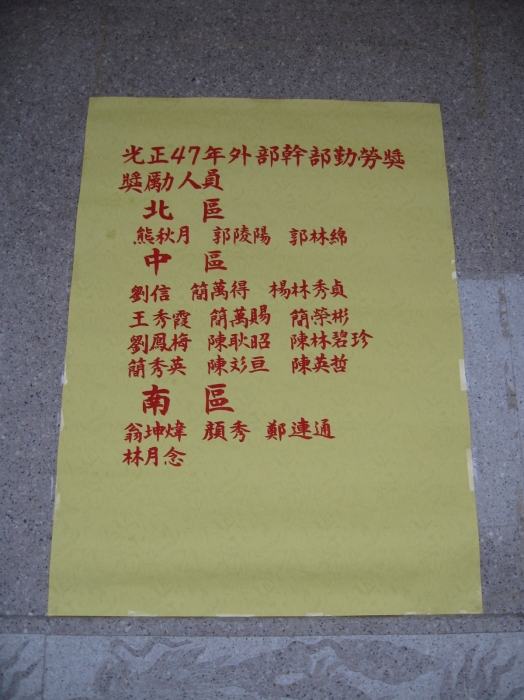 光正47年外部幹部勤勞獎
獎勵人員
北 區
熊秋月 郭陵陽 郭林綿
中 區
劉信 簡萬得 楊林秀貞
王秀霞 簡萬賜 簡榮彬
劉鳳梅 陳耿昭 陳林碧珍
簡秀英 陳彣亘 陳英哲
南 區
翁坤煒 顏秀 鄭連通
林月念